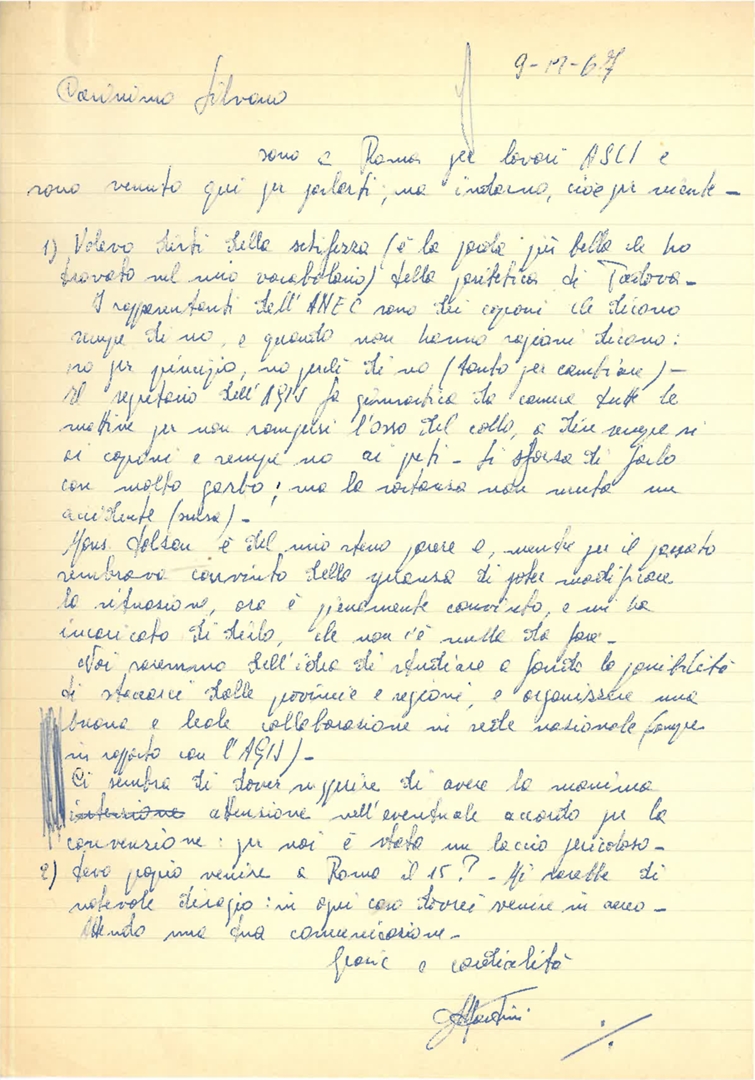 9-12-67
Carissimo Silvano
sono a Roma per lavori ASCI e
sono venuto qui per parlarti; ma indarno, cioè per niente -
1) Volevo dirti della schifezza (è la parola più bella che ho
trovato nel mio vocabolario) della paritetica di Padova -
I rappresentanti dell'ANEC sono dei caproni che dicono
sempre di no, e quando non hanno ragioni dicono:
no per principio, no perché di no (tanto per cambiare) -
Il segretario dell'AGIS fa ginnastica da camera tutte le
mattine per non rompersi l'osso del collo, a dire sempre si
ai caproni e sempre no ai preti - Si sforza di farlo
con molto garbo; ma la sostanza non muta un
accidente (scusa) -
Mons. è del mio stesso parere e, mentre per il passato
sembrava convinto della speranza di poter modificare
la situazione, ora è pienamente convinto, e mi ha
incaricato di dirlo, che non c'è nulla da fare -
Noi saremmo dell'idea di studiare a fondo la possibilità
di staccarci dalle provincie e regioni, e organizzare una
buona e leale collaborazione in sede nazionale (sempre
in rapporto con l'AGIS) -
Ci sembra di dover suggerire di avere la massima
intensione attensione nell'eventuale accordo per la
convenzione: per noi è stato un laccio pericoloso -
2) devo proprio venire a Roma il 15? - Mi sarebbe di
notevole disagio: in ogni caso dovrei venire in aereo -
Attendo una tua comunicazione -
Grazie e cordialità